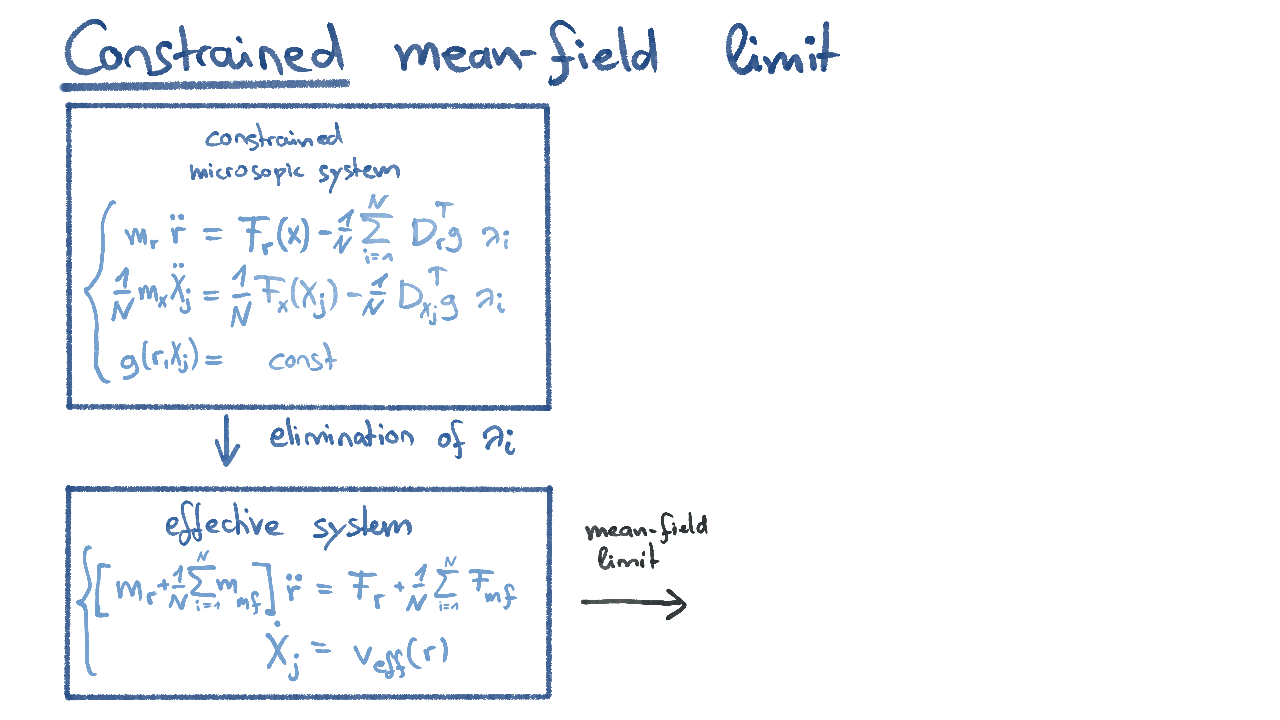 Constrained mean-field limit
constrained
microsopic system
m_r r̈ = F_r(x) - 1/N ∑_{i=1}^{N} D_r^T g λ_i
1/N m_x Ẍ_j = 1/N F_x(X_j) - 1/N D_{x_j}^T g λ_i
g(r, X_j) = const
↓ elimination of λ_i
effective system
[m_r + 1/N ∑_{i=1}^{N} m_{mf}] r̈ = F_r + 1/N ∑_{i=1}^{N} F_{mf}
Ẋ_j = v_{eff}(r)
mean-field
limit